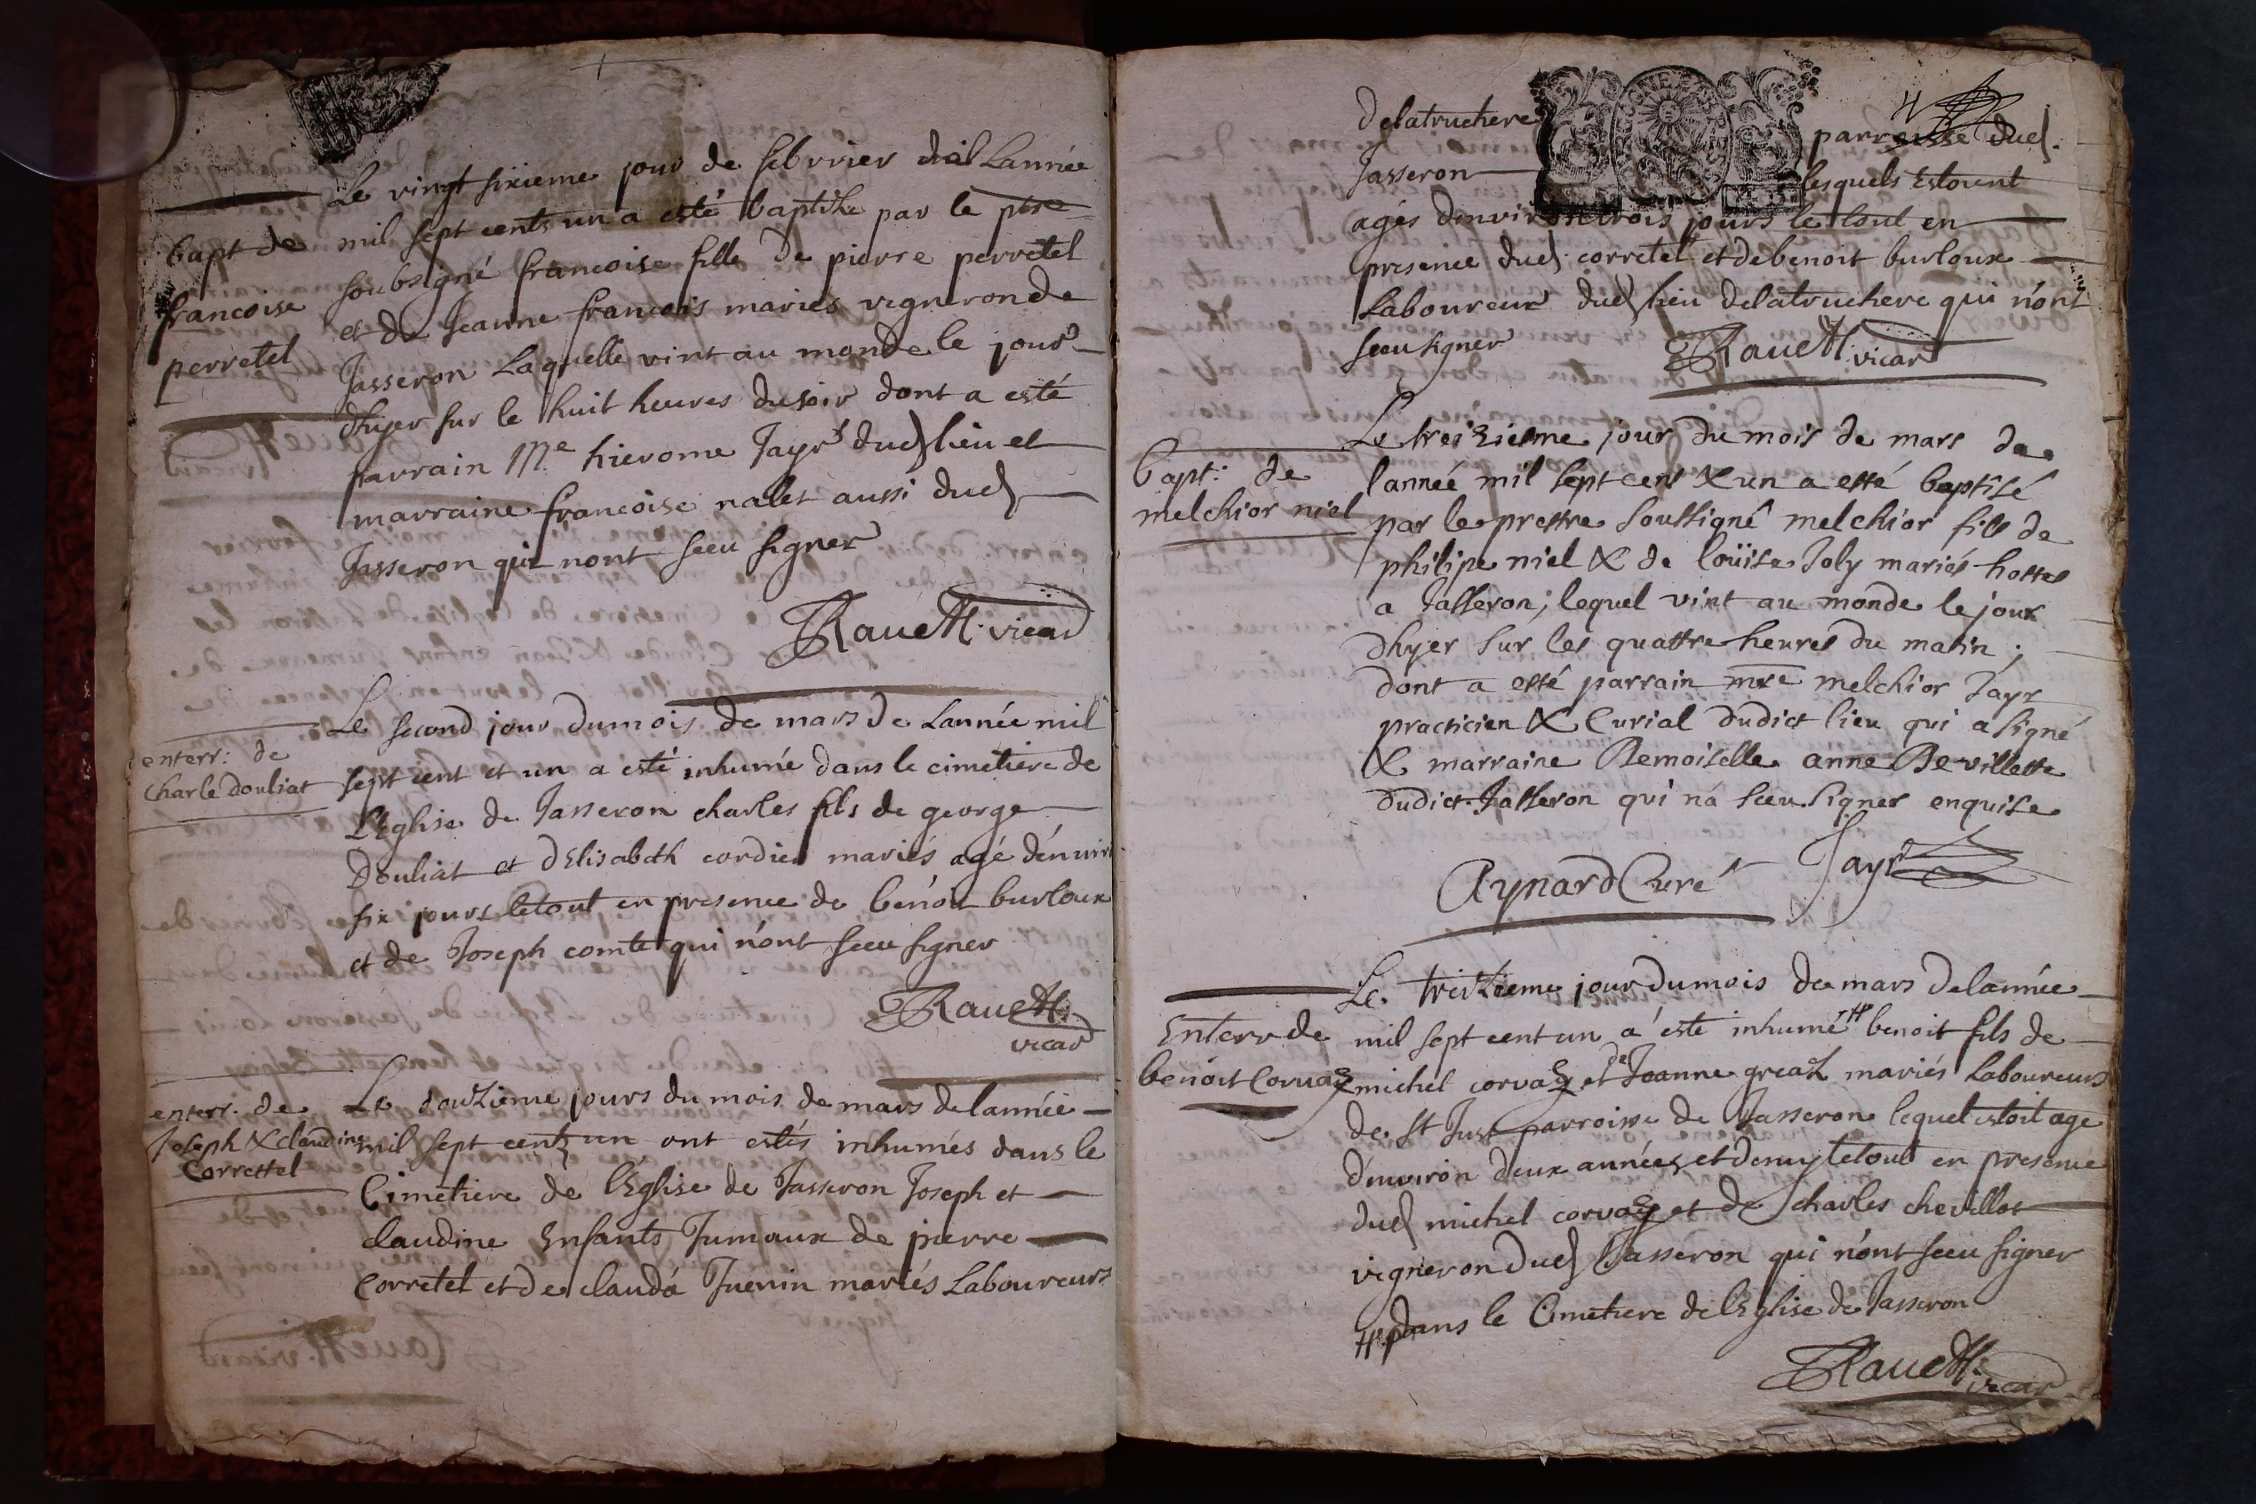 bapt de
francoise
perretel
Le vingt sixieme jour de febvrier de Lannée
mil sept cents un a esté baptisée par le ptre
soubsigné francoise fille de pierre perretel
et de Jeanne francois mariés vignerons de
Jasseron Laquelle vint au monde le jour
dhyer sur le huit heures du soir dont a esté
parrain Me hierome Jayr dud lieu et
marraine francoise nalet aussi dud
Jasseron qui nont sceu signer
Ravett. vicar
enterr: de
charle douliat
Le second jour dumois de mars de Lannée mil
sept cent et un a esté inhumé dans le cimetiere de
LEglise de Jasseron charles fils de george
Douliat et dElisabeth cordier mariés agé dénviron
six jours letout en presence de benoit burloux
et de Joseph comte qui n'ont sceu signer
Ravett.
vicar
enterr. de
Joseph & claudine
Correttel
Le douzieme jours du mois de mars delannée
mil sept centz un ont estés inhumés dans le
Cimetiere de l'Eglise de Jasseron Joseph et
claudine Enfants Jumaux de pierre
Corretel et de clauda Juenin mariés Laboureurs
4
delatruchere parroisse dud.
Jasseron lesquels Estoient
agés denviron trois jours le tout en
presence dud. corretel et debenoit burloux
Laboureur dud lieu delatruchere qui n'ont
sceu signer
Ravett. vicar
bapt: de
melchior niel
Le treiziesme jour du mois de mars de
lannée mil sept cent & un a esté baptisé
par le prestre soussigné melchior fils de
philipe niel & de loüise Joly mariés hostes
a Jasseron; lequel vint au monde le jour
dhyer sur les quattre heures du matin;
dont a esté parrain mre melchior Jayr
practicien & Curial dudict lieu qui a signé
& marraine Demoiselle anne De villette
dudict Jasseron qui n'a sceu signer enquise
Aynard Curé Jayr
Enterr de
benoit Corvaz
Le treizieme jour dumois de mars delannée
mil sept cent un a esté inhumé # benoit fils de
michel corvaz et de Joanne greaz mariés Laboureurs
de St Just parroisse de Jasseron lequel estoit age
d'environ deux années et demy letout en presence
dud michel corvaz et de charles chevillot
vigneron dud Jasseron qui n'ont sceu signer
# dans le Cimetiere de lEglise de Jasseron
Ravett. vicar